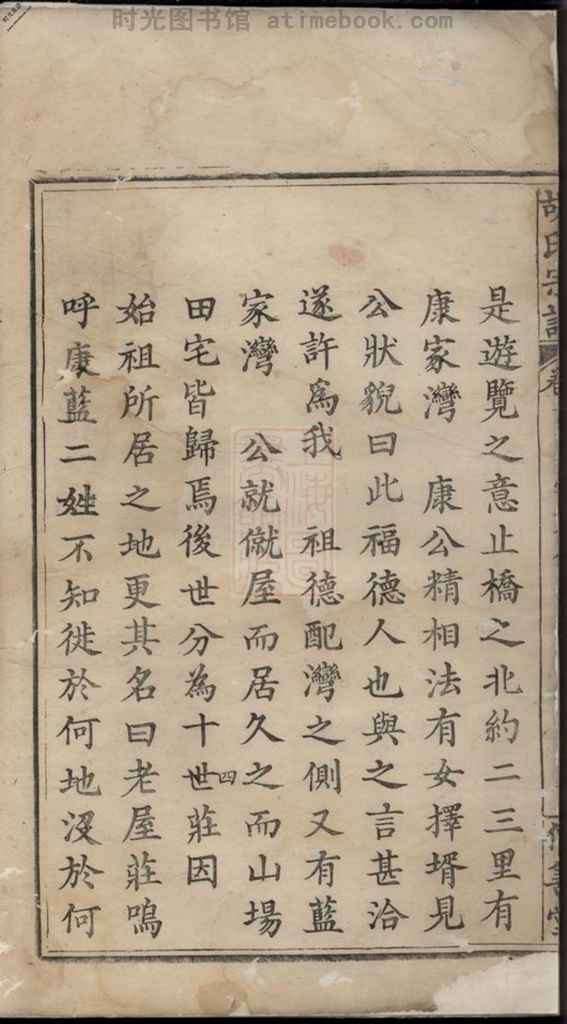 时光图书馆 atimebook.com
是遊覽之意止橋之北約二三里有
康家灣 康公精相法有女擇壻見
公狀貌曰此福德人也與之言甚洽
遂許爲我 祖德配灣之側又有藍
家灣 公就僦屋而居久之而山場
田宅皆歸焉後世分為十四世莊因
始祖所居之地更其名曰老屋莊嗚
呼康藍二姓不知徙於何地沒於何